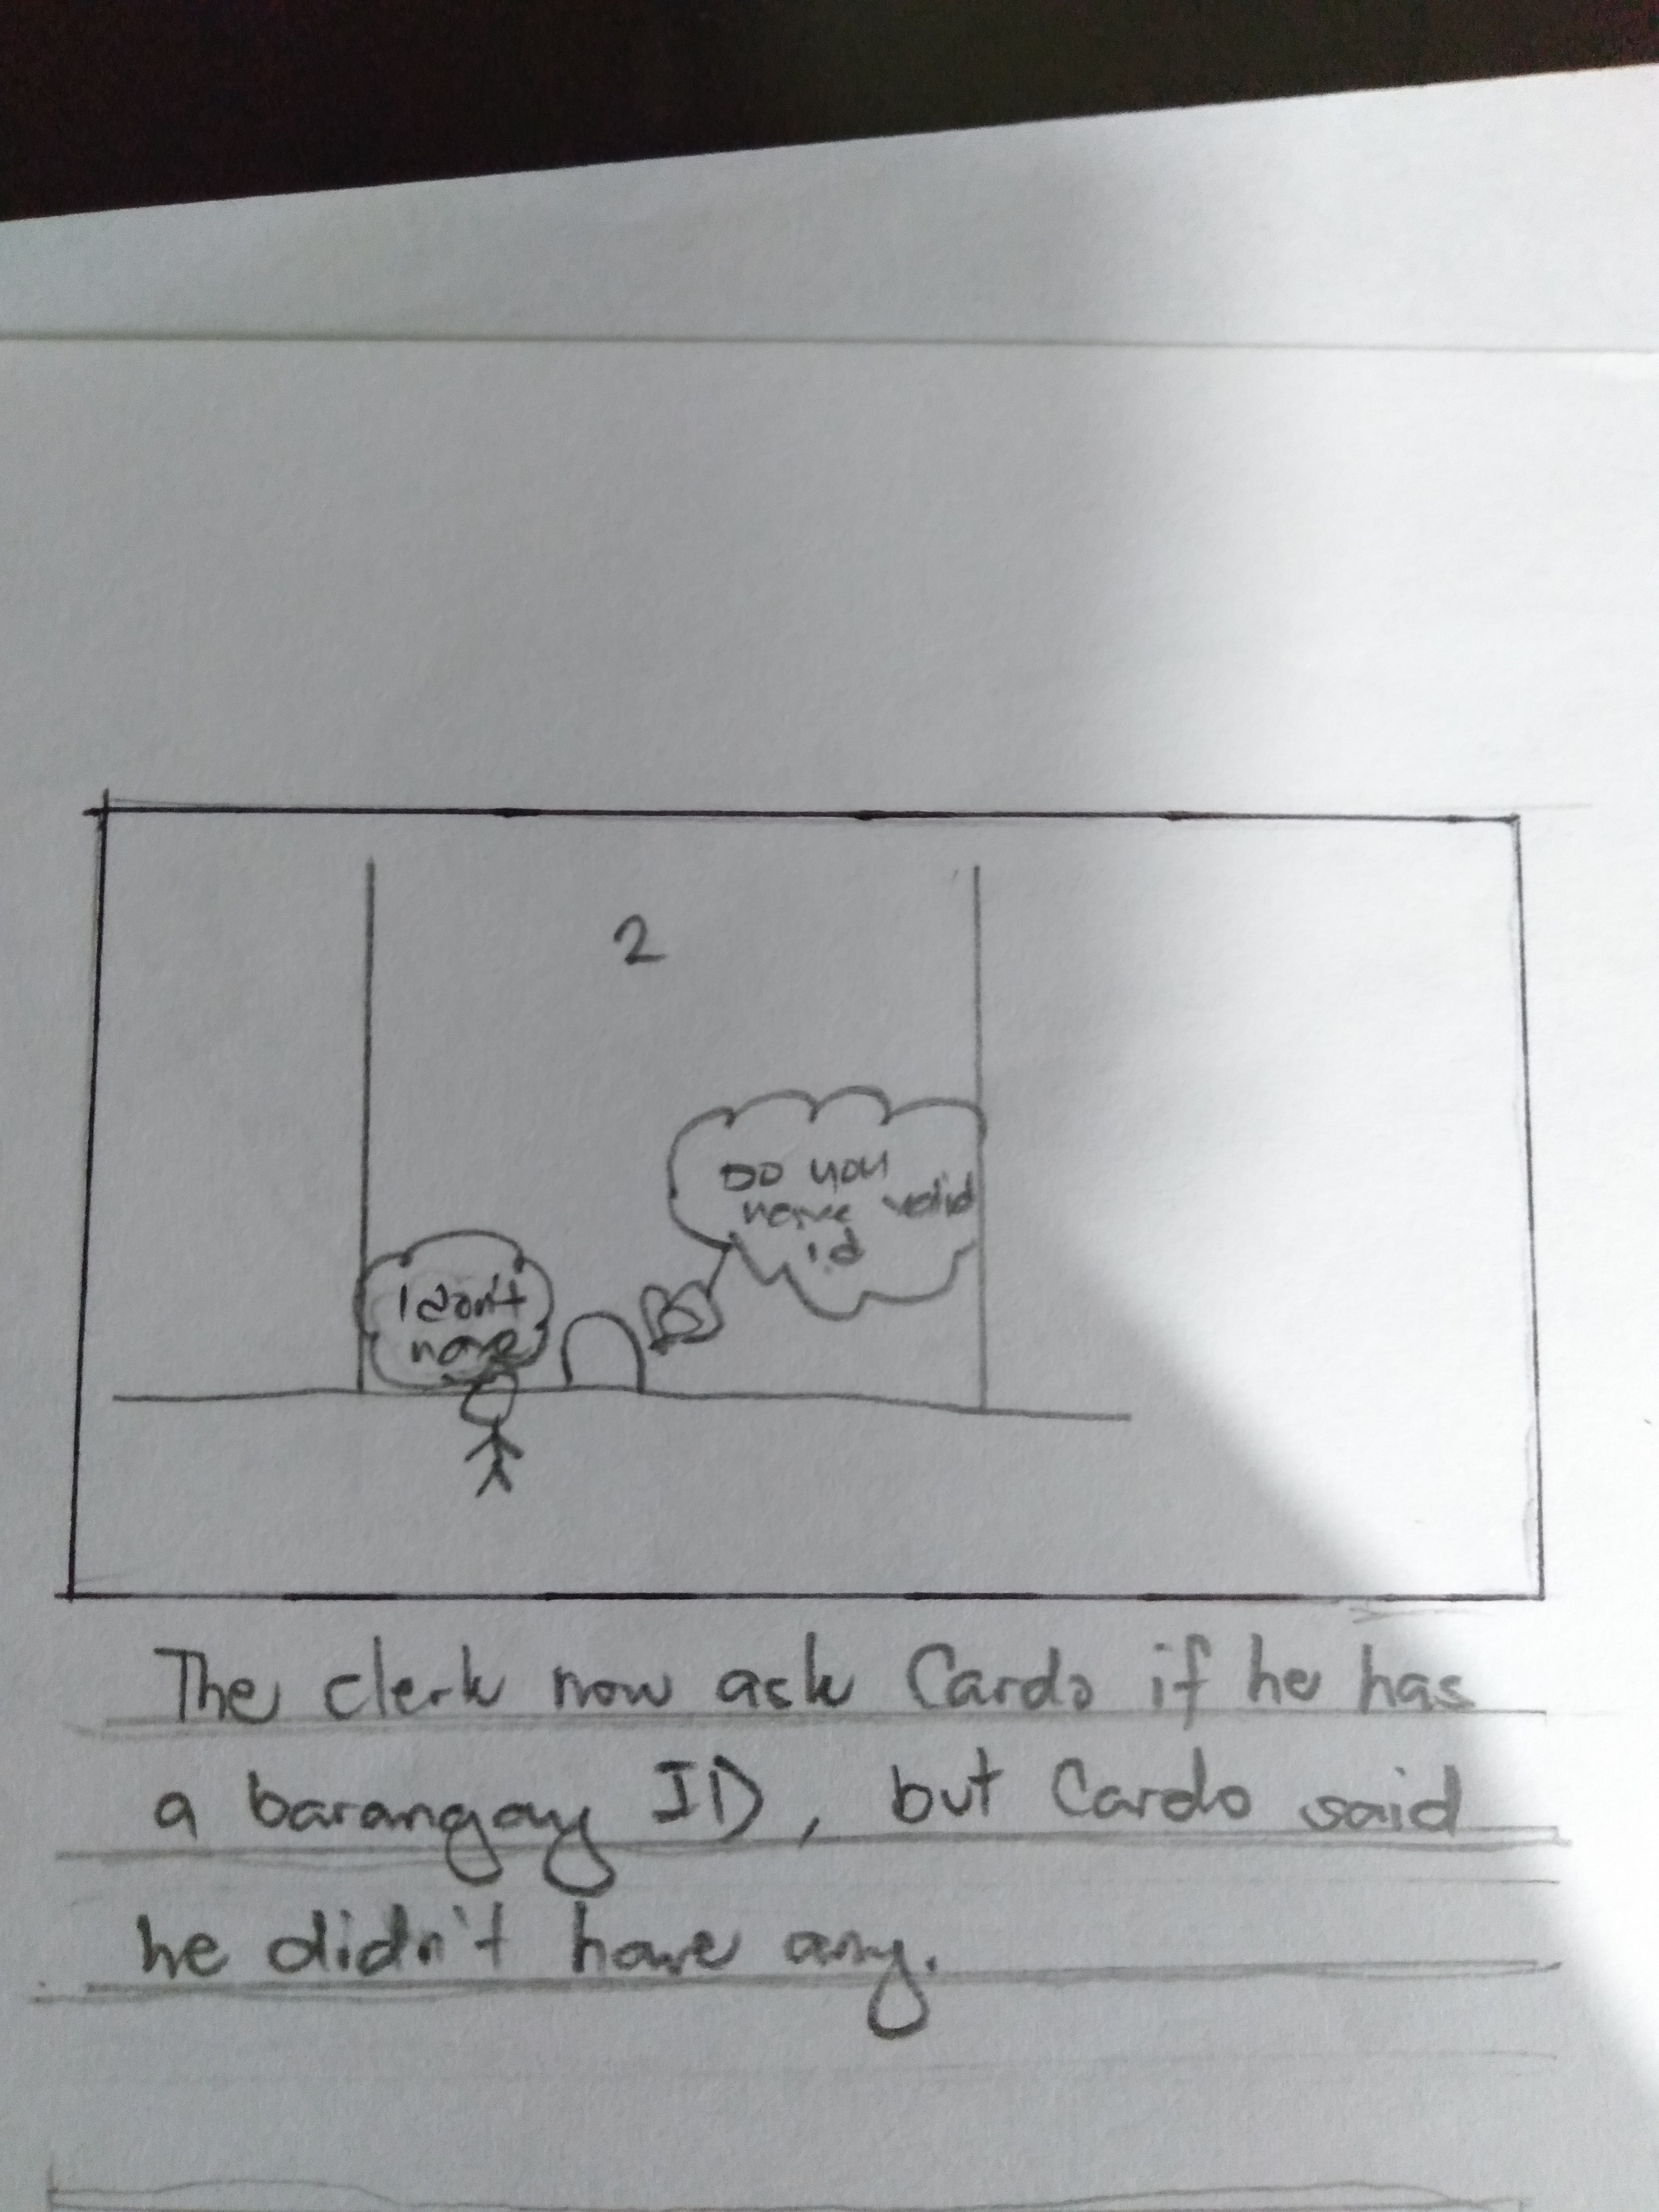 2
Do you
have valid
id
I don't
have
The clerk now ask Cardo if he has
a barangay ID, but Cardo said
he didn't have any.